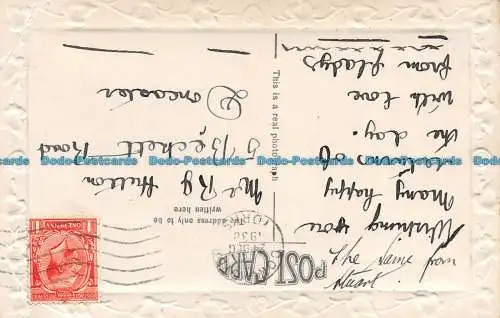 POST CARD
The address only to be
written here
This is a real photograph
The same from
Stuart.
Wishing you
many happy
returns of
the day.
With love
from Gladys
xxxxxxxx
Mr R G Hutton
5 Beckett Road
Doncaster
1938
Dodo-Postcards Dodo-Postcards Dodo-Postcards Dodo-Postcards